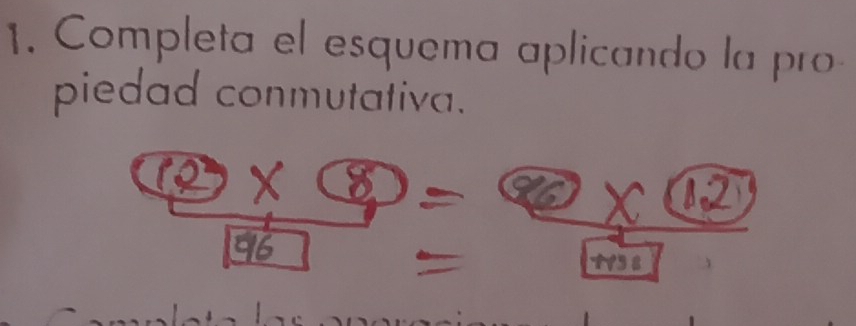 1. Completa el esquema aplicando la pro-
piedad conmutativa.
12 X 8 = 96 X 12
96 =